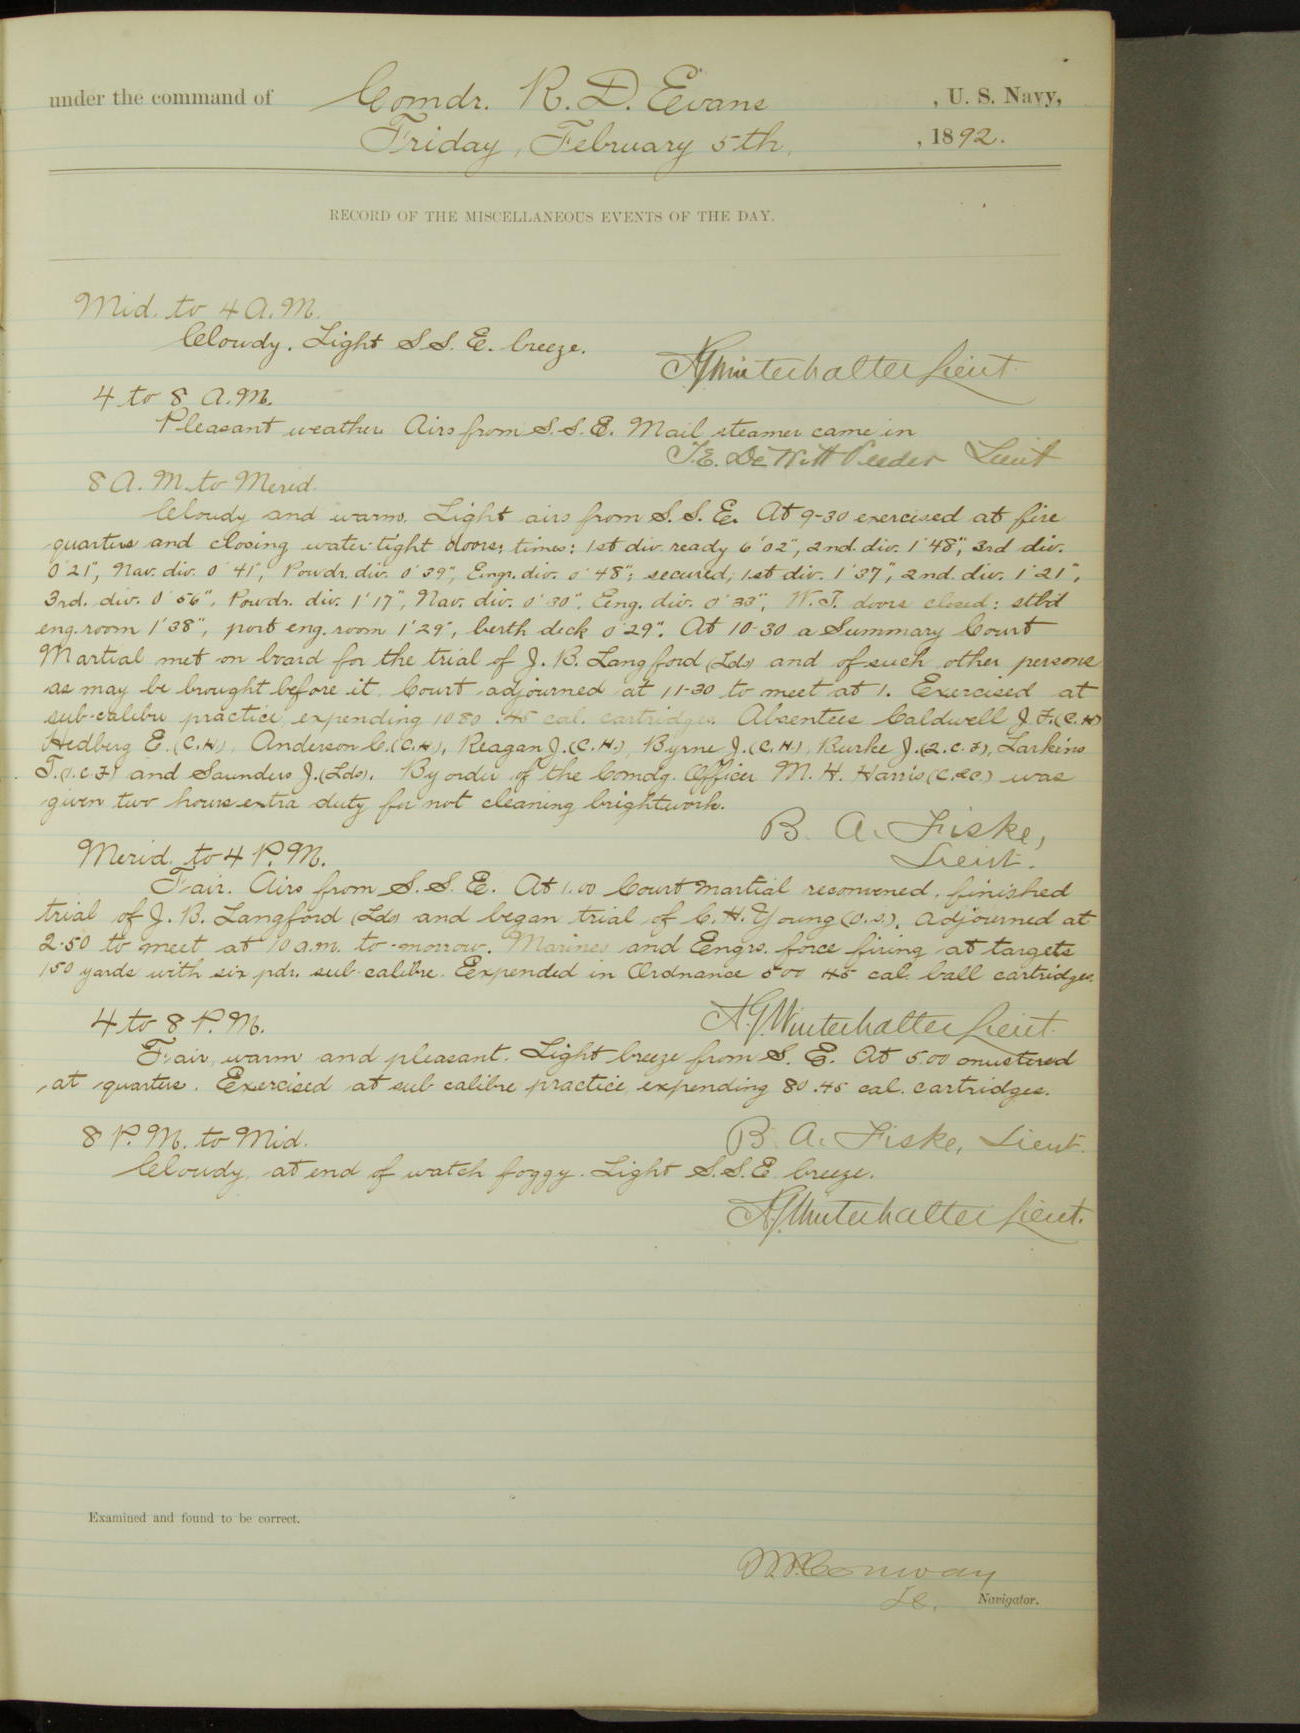 under the command of Comdr. R. D. Evans, U. S. Navy,
Friday, February 5th, 1892.
RECORD OF THE MISCELLANEOUS EVENTS OF THE DAY.
Mid. to 4 A.M.
Cloudy. Light S.S.E. breeze.
A.G. Winterhalter Lieut.
4 to 8 A.M.
Pleasant weather. Airs from S.S.E. Mail steamer came in
T.E. DeWitt Veeder Lieut
8 A.M. to Merid.
Cloudy and warm. Light airs from S.S.E. At 9-30 exercised at fire
quarters and closing water-tight doors; times: 1st div. ready 6'02", 2nd. div. 1'48", 3rd div.
0'21", Nav. div. 0'41", Powdr. div. 0'39", Engr. div. 0'48"; secured; 1st div. 1'37", 2nd. div. 1'21",
3rd. div. 0'56", Powdr. div. 1'17", Nav. div. 0'30", Eng. div. 0'33", W.T. doors closed: stb'd
eng. room 1'38", port eng. room 1'29", berth deck 0'29". At 10-30 a Summary Court
Martial met on board for the trial of J. B. Langford (Lds) and of such other persons
as may be brought before it. Court adjourned at 11-30 to meet at 1. Exercised at
sub-calibre practice, expending 1080 .45 cal. cartridges. Absentees Caldwell J. F. (C.H)
Hedberg E. (C.H.), Anderson C. (C.H.), Reagan J. (C.H.), Byrne J. (C.H.), Burke J. (2.C.F.), Larkins
T. (1.C.F) and Saunders J. (Lds). By order of the Comdg. Officer M. H. Harris was
given two hours extra duty for not cleaning brightwork.
B. A. Fiske,
Lieut.
Merid. to 4 P.M.
Fair. Airs from S.S.E. At 1.00 Court Martial reconvened, finished
trial of J. B. Langford (Lds) and began trial of C. H. Young (O.S.). Adjourned at
2-50 to meet at 10 a.m. to-morrow. Marines and Engrs. force firing at targets
150 yards with six pdr. sub-calibre. Expended in Ordnance 500 .45 cal. ball cartridges.
A.G. Winterhalter Lieut.
4 to 8 P.M.
Fair, warm and pleasant. Light breeze from S.E. At 5.00 mustered
at quarters. Exercised at sub calibre practice, expending 80 .45 cal. cartridges.
B. A. Fiske, Lieut.
8 P.M. to Mid.
Cloudy, at end of watch foggy. Light S.S.E. breeze.
A.G. Winterhalter Lieut.
Examined and found to be correct.
Conway
Navigator.